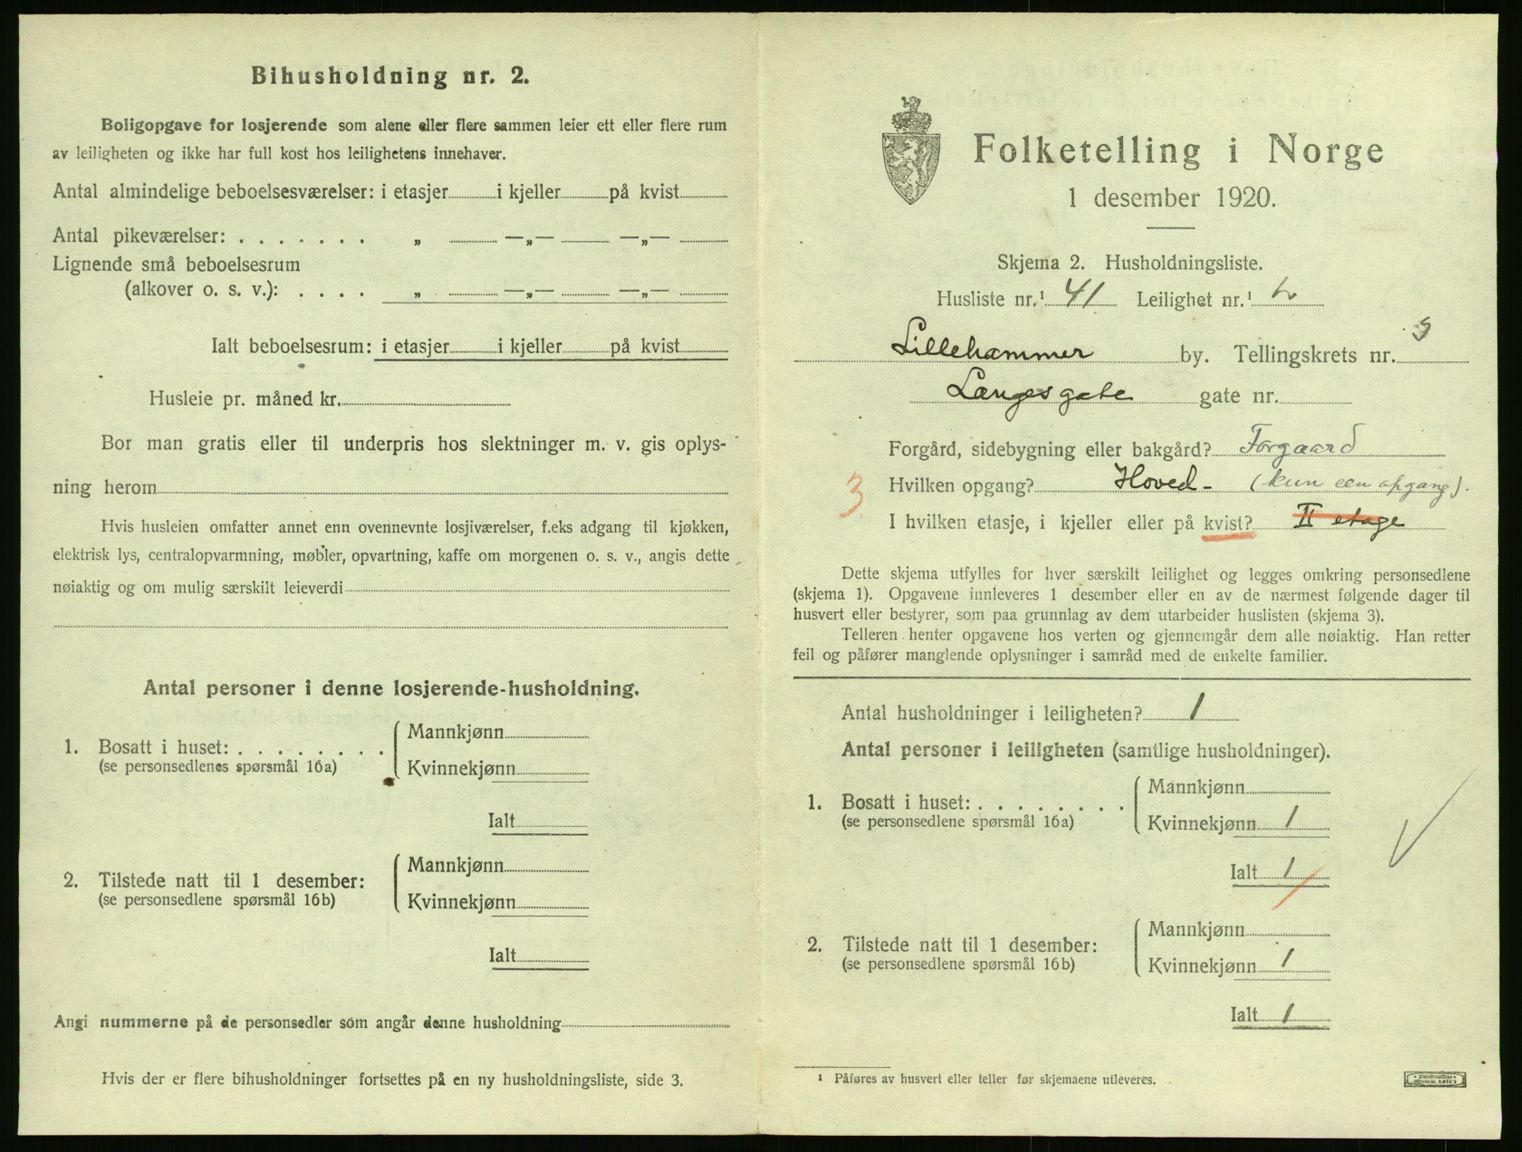 Bihusholdning nr. 2.
Boligopgave for losjerende som alene eller flere sammen leier ett eller flere rum
av leiligheten og ikke har full kost hos leilighetens innehaver.
Antal almindelige beboelsesværelser: i etasjer i kjeller på kvist
Antal pikeværelser: . . . . . . . „ —„— —„—
Lignende små beboelsesrum
(alkover o. s. v.): . . . . „ —„— —„—
Ialt beboelsesrum: i etasjer i kjeller på kvist
Husleie pr. måned kr.
Bor man gratis eller til underpris hos slektninger m. v. gis oplys-
ning herom
Hvis husleien omfatter annet enn ovennevnte losjiværelser, f.eks adgang til kjøkken,
elektrisk lys, centralopvarmning, møbler, opvartning, kaffe om morgenen o. s. v., angis dette
nøiaktig og om mulig særskilt leieverdi
Antal personer i denne losjerende-husholdning.
1. Bosatt i huset: . . . . . . . .
(se personsedlenes spørsmål 16a)
Mannkjønn
Kvinnekjønn
Ialt
2. Tilstede natt til 1 desember:
(se personsedlene spørsmål 16b)
Mannkjønn
Kvinnekjønn
Ialt
Angi nummerne på de personsedler som angår denne husholdning
Hvis der er flere bihusholdninger fortsettes på en ny husholdningsliste, side 3.
Folketelling i Norge
1 desember 1920.
Skjema 2. Husholdningsliste.
Husliste nr.¹ 41 Leilighet nr.¹
Lillehammer by. Tellingskrets nr.
Langesgate gate nr.
Forgård, sidebygning eller bakgård? Forgaard
3 Hvilken opgang? Hoved- (kun een opgang).
I hvilken etasje, i kjeller eller på kvist? II etage
Dette skjema utfylles for hver særskilt leilighet og legges omkring personsedlene
(skjema 1). Opgavene innleveres 1 desember eller en av de nærmest følgende dager til
husvert eller bestyrer, som paa grunnlag av dem utarbeider huslisten (skjema 3).
Telleren henter opgavene hos verten og gjennemgår dem alle nøiaktig. Han retter
feil og påfører manglende oplysninger i samråd med de enkelte familier.
Antal husholdninger i leiligheten? 1
Antal personer i leiligheten (samtlige husholdninger).
1. Bosatt i huset: . . . . . . . .
(se personsedlene spørsmål 16a)
Mannkjønn
Kvinnekjønn 1
Ialt 1
2. Tilstede natt til 1 desember:
(se personsedlene spørsmål 16b)
Mannkjønn
Kvinnekjønn 1
Ialt 1
¹ Påføres av husvert eller teller før skjemaene utleveres.